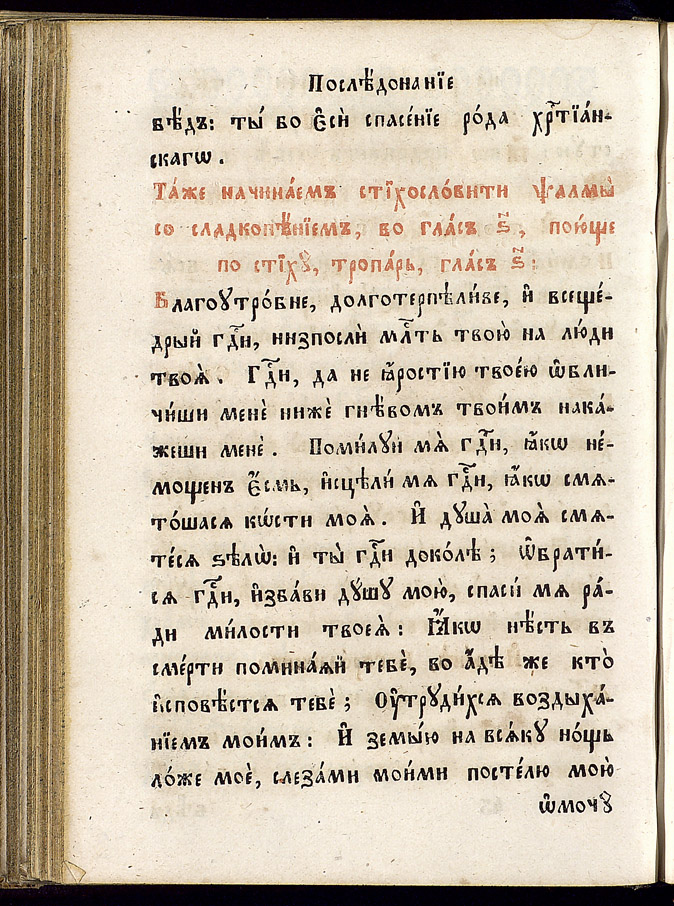 Послѣ́дованїе
бѣ́дъ: ты́ бо є҆сѝ спасе́нїе ро́да хрⷭ҇тїа́н-
скагѡ.
Та́же начина́емъ стїхосло́вити ѱалмы̀
со сладкопѣ́нїемъ, во гла́съ ѕ҃, пою́ще
по стїхꙋ̀, тропа́рь, гла́съ ѕ҃:
Благоꙋтро́бне, долготерпѣли́ве, и҆ всеще́-
дрый гдⷭ҇и, низпослѝ млⷭ҇ть твою̀ на лю́ди
твоѧ̀. Гдⷭ҇и, да не ꙗ҆́ростїю твое́ю ѡ҆бли-
чи́ши менѐ нижѐ гнѣ́вомъ твои́мъ нака́-
жеши менѐ. Поми́лꙋй мѧ̀ гдⷭ҇и, ꙗ҆́кѡ не́-
мощенъ є҆́смь, и҆сцѣли́ мѧ гдⷭ҇и, ꙗ҆́кѡ смѧ-
то́шасѧ кѡ́сти моѧ̀. И҆ дꙋша̀ моѧ̀ смѧ-
те́сѧ ѕѣлѡ̀: и҆ ты̀ гдⷭ҇и доко́лѣ; Ѡ҆брати́-
сѧ гдⷭ҇и, и҆зба́ви дꙋ́шꙋ мою̀, спаси́ мѧ ра́-
ди ми́лости твоеѧ̀: Ꙗ҆́кѡ нѣ́сть въ
сме́рти помина́ѧй тебѐ, во а҆́дѣ же кто̀
и҆сповѣ́стсѧ тебѐ; Оу҆трꙋди́хсѧ воздыха́-
нїемъ мои́мъ: И҆ змы́ю на всѧ́кꙋ но́щь
ло́же моѐ, слеза́ми мои́ми посте́лю мою̀
ѡ҆мочꙋ̀